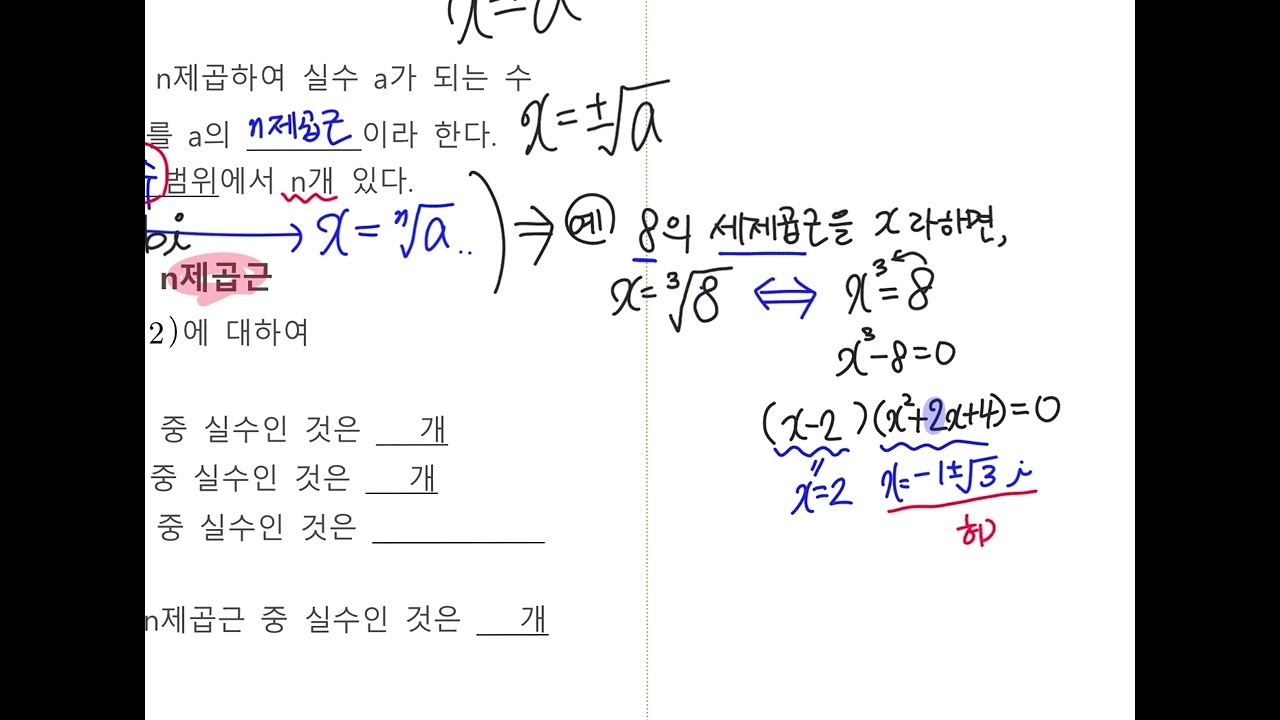 x=a
n제곱하여 실수 a가 되는 수
를 a의 n제곱근 이라 한다.
x=±√a
범위에서 n개 있다.
bi → x=ⁿ√a.. ) ⇒ 예) 8의 세제곱근을 x라하면,
x=³√8 ⇔ x³=8
n제곱근
2)에 대하여
x³-8=0
(x-2)(x²+2x+4)=0
중 실수인 것은 ___개
x=2 x=-1±√3 i
중 실수인 것은 ___개
중 실수인 것은 ___
허
n제곱근 중 실수인 것은 ___개